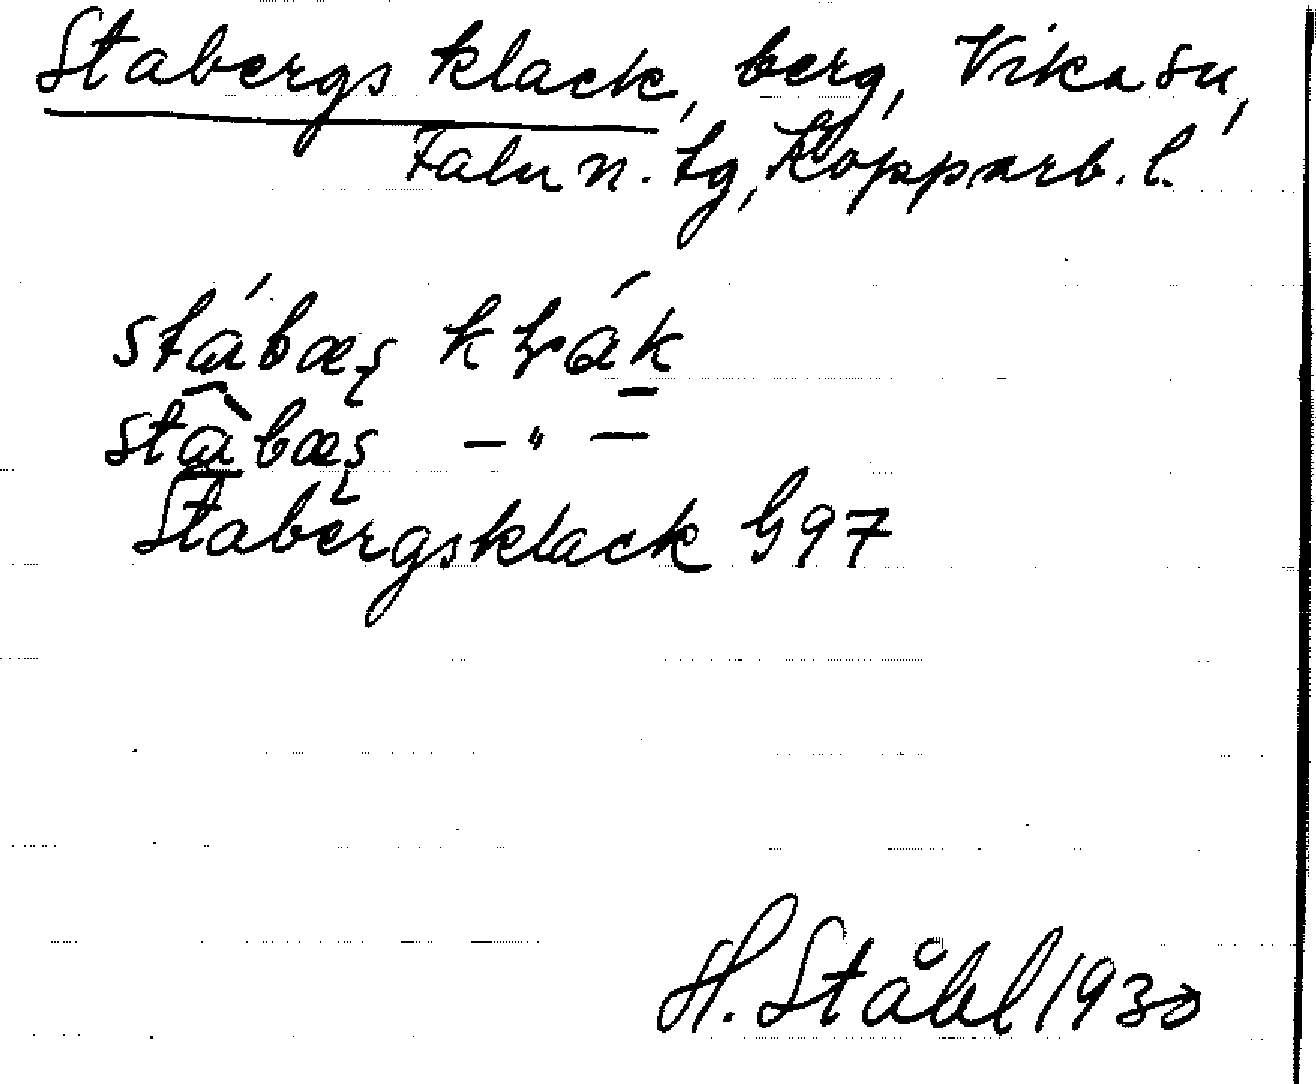 Stabergs klack, berg, Vika sn,
Falu n. tg, Kopparb. l.
stábæş kɬák
stâbæş — " —
Stabergsklack G97
H. Ståhl 1930